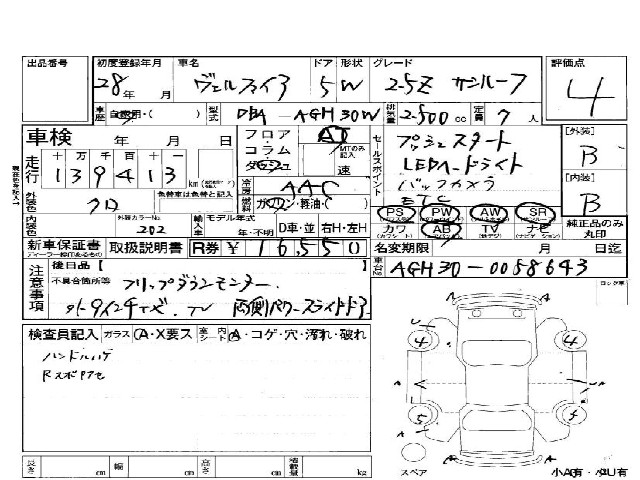 出品番号 初度登録年月 車名 ドア 形状 グレード 評価点
28年 月 ヴェルファイア 5 W 2.5Z サンルーフ 4
車歴 自家用・( ) 型式 DBA-AGH30W 排気量 2500 cc 定員 7 人
車検 年 月 日 フロア・コラム・ダッシュ AT MTのみ記入 速
セールスポイント プッシュスタート
LEDヘッドライト
バックカメラ
ETC
[外装] B
[内装] B
走行 十 万 千 百 十 一
139413 km
冷房 AAC
外装色 クロ 色替車は色替と記入 燃料 ガソリン・軽油・( )
PS PW AW SR
カワ AB TV ナビ
純正品のみ丸印
内装色 外装カラーNo. 202 輸入車 モデル年式 年・不明 D車・並 右H・左H
新車保証書 取扱説明書 R券 ¥16550 名変期限 月 日迄
車台No. AGH30-0058643
注意事項 後日品[ ]
不具合箇所等 フリップダウンモニター
両側パワースライドドア
検査員記入 ガラス (A・X要ス 室内シート (A・コゲ・穴・汚れ・破れ
ハンドルハゲ
スペア
長さ cm 幅 cm 高さ cm 積載量 kg